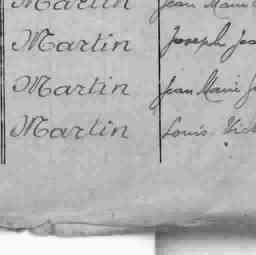 Martin Jean Marie
Martin Joseph Jea
Martin Jean Marie J
Martin Louis Vict